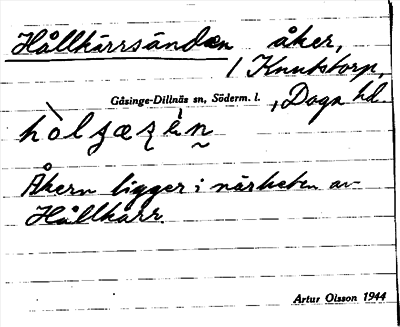 Hållkärrsändan åker,
/ Knutstorp,
Gåsinge-Dillnäs sn, Söderm. l. , Daga hd.
Åkern ligger i närheten av
Hållkärr.
Artur Olsson 1944